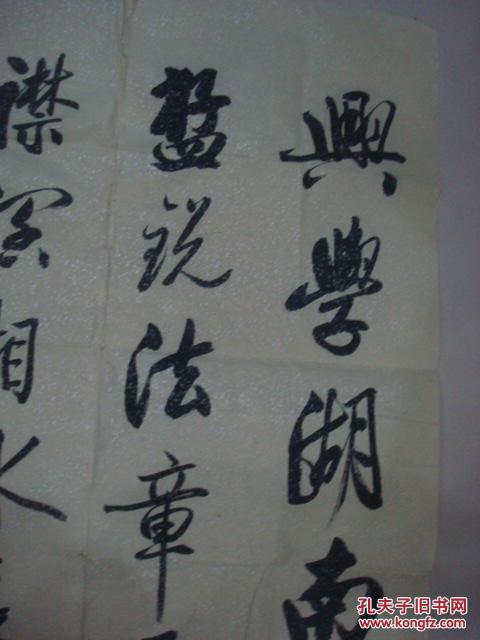 興學湖南
盤銳法章
襟容湘水
孔夫子旧书网
www.kongfz.com